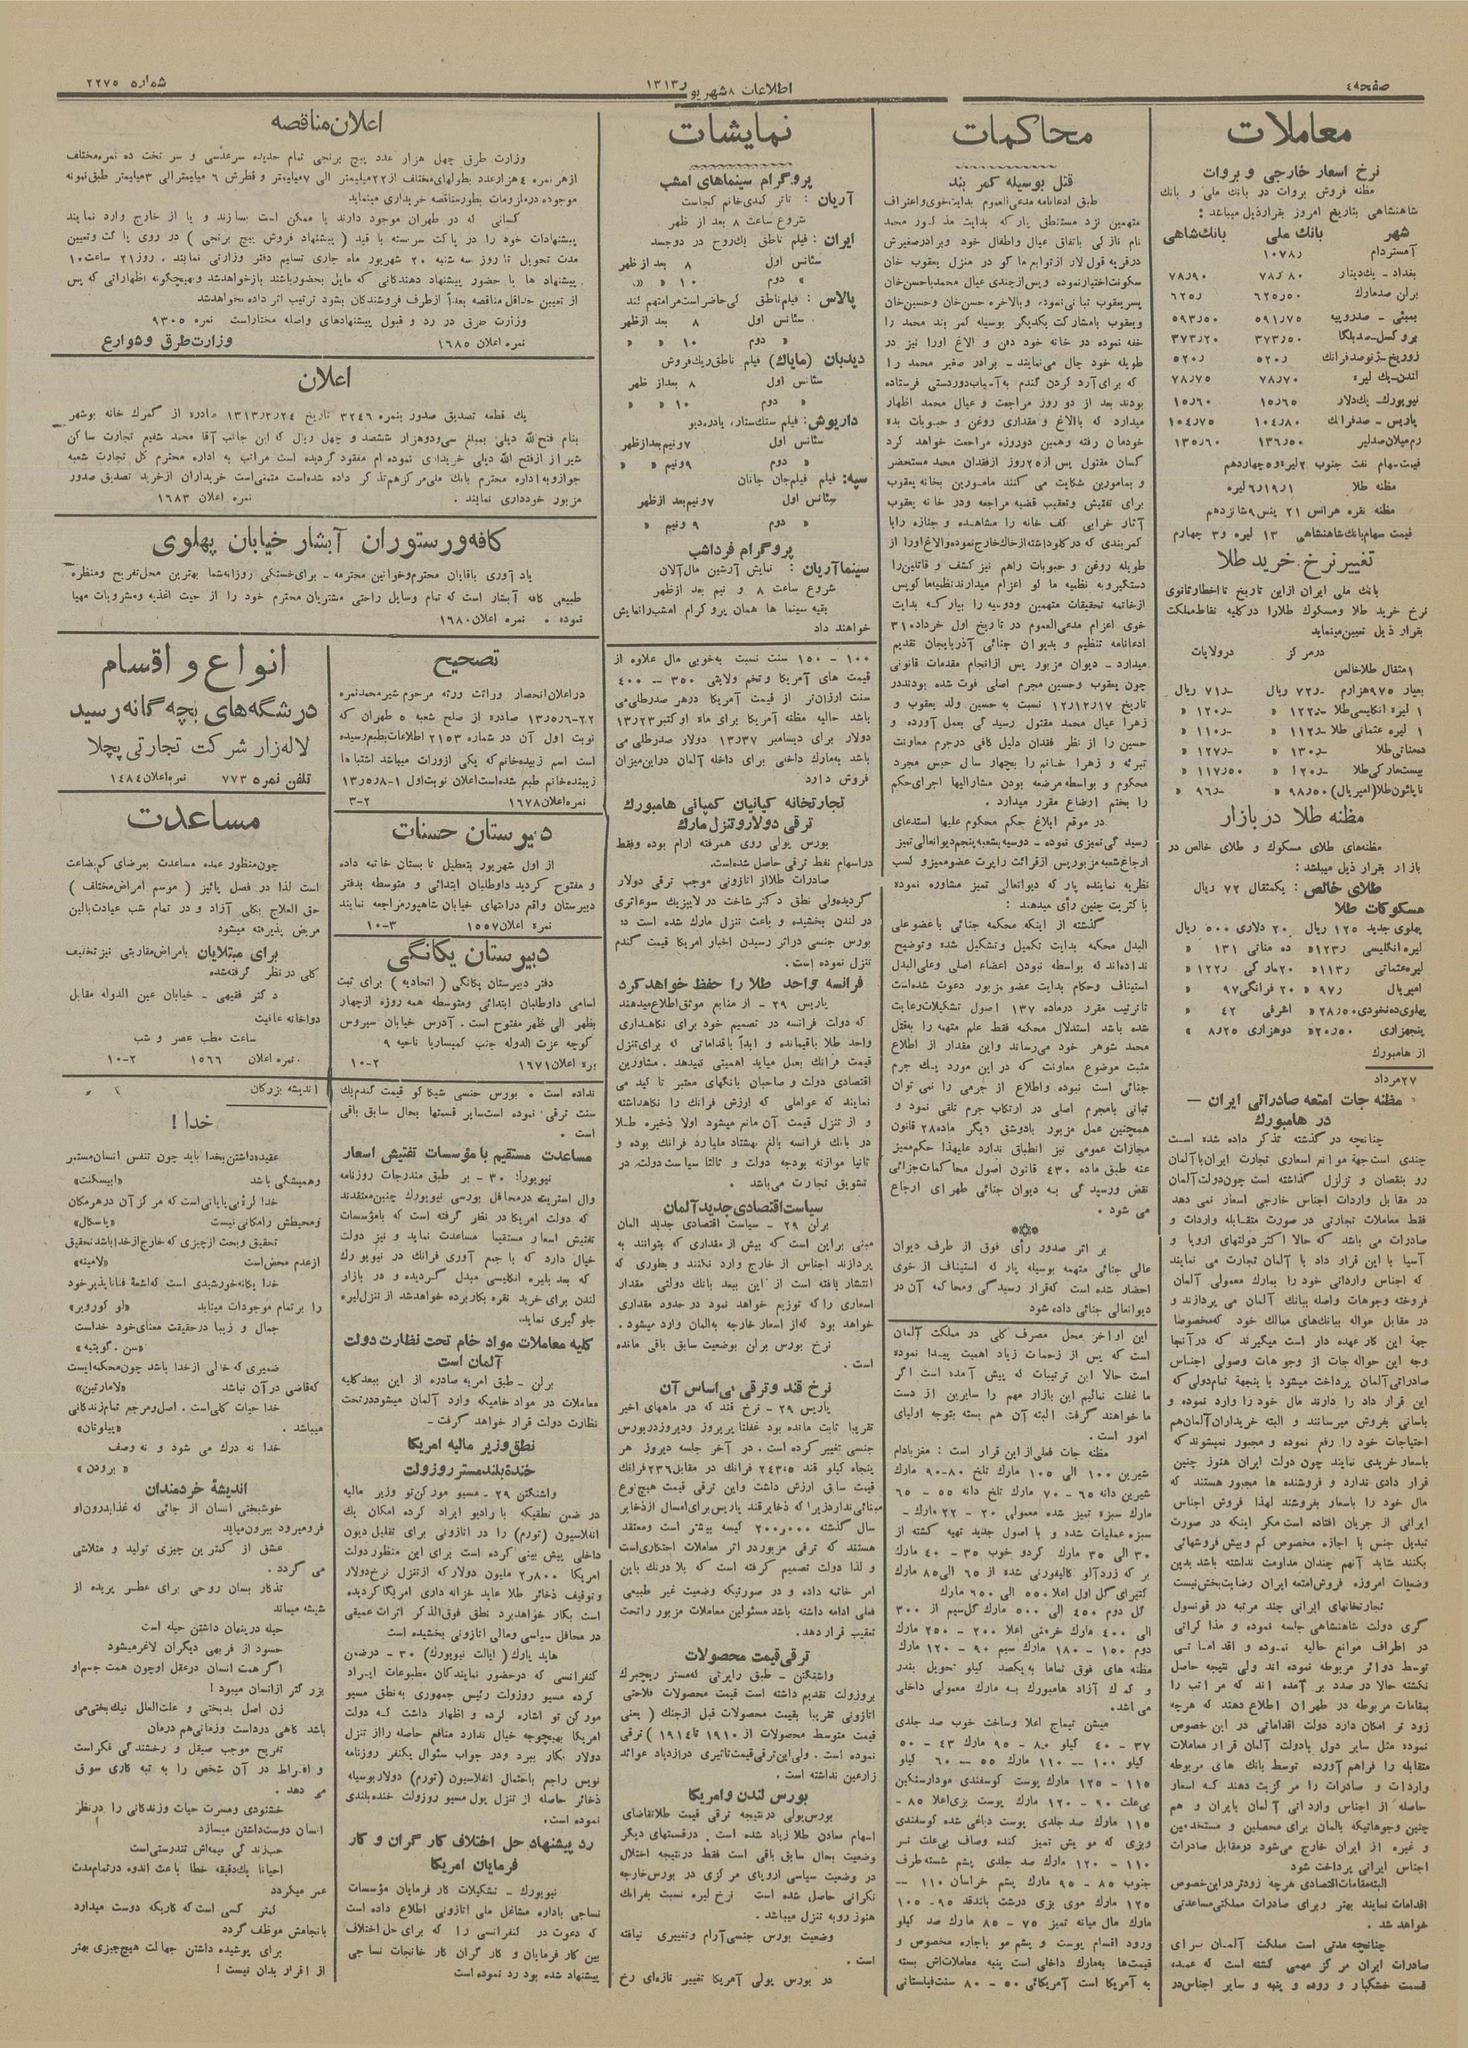 صفحه٤
اطلاعات ۸ شهریور ۱۳۱۳
شماره ۲۲۷۵
معاملات
نرخ اسعار خارجی و بروات
مظنه فروش بروات در بانك ملی و بانك
شاهنشاهی بتاریخ امروز بقرار ذیل میباشد :
شهر بانك ملی بانك شاهی
آمستردام ۱۰۷۸ر
بغداد - یك دینار ۷۸ر۸۰ ۷۸ر۹۰
برلن صدمارك ۶۲۵ر۵۰ ۶۲۵ر
بمبئی - صدروپیه ۵۹۱ر۷۵ ۵۹۳ر۵۰
بروكسل - صدبلگا ۳۷۳ر۵۰ ۳۷۳ر۲۰
زوریخ - ترنو صدفرانك ۵۲۰ر ۵۲۰ر
لندن - یك لیره ۷۸ر۷۰ ۷۸ر۷۵
نیویورك - یك دلار ۱۵ر۶۵ ۱۵ر۶۰
پاریس - صدفرانك ۱۰۴ر۸۰ ۱۰۴ر۷۵
رم میلان صدلیر ۱۳۶ر۵۰ ۱۳۵ر۶۰
قیمت سهام نفت جنوب ۲ لیره و ۵ چهاردهم
مظنه طلا ۱ر۱۹ر۶ لیره
مظنه نقره هرانس ۲۱ پنس ۹ شانزدهم
قیمت سهام بانك شاهنشاهی ۱۳ لیره و ۳ چهارم
تغییر نرخ خرید طلا
بانك ملی ایران از این تاریخ تا اخطار ثانوی
نرخ خرید طلا و مسكوك طلا را در كلیه نقاط مملكت
بقرار ذیل تعیین مینماید
در مركز در ولایات
۱ مثقال طلا خالص
بعیار ۹۷۵ هزارم ۷۲ر- ریال ۷۱ر- ریال
۱ لیره انگلیسی طلا ۱۲۲ر- « ۱۲۰ر- «
۱ لیره عثمانی طلا ۱۱۲ر- « ۱۱۰ر- «
ده مناتی طلا ۱۳۰ر- « ۱۲۷ر- «
بیست ماركی طلا ۱۲۰ر- « ۱۱۷ر۵۰ «
ناپلئون طلا (امپریال) ۹۸ر۵۰ « ۹۶ر- «
مظنه طلا در بازار
مظنه های طلای مسكوك و طلای خالص در
بازار بقرار ذیل میباشد :
طلای خالص : یكمثقال ۷۲ ریال
مسكوكات طلا
پهلوی جدید ۱۲۵ ریال ۲۰ دلاری ۵۰۰ ریال
لیره انگلیسی ۱۲۳ر « ده مناتی ۱۳۱ «
لیره عثمانی ۱۱۳ر « ۲۰ ماركی ۱۲۲ر «
امپریال ۹۷ر « ۲۰ فرانكی ۹۷ «
پهلوی ده نخودی ۲۸ر۵۰ « اشرفی ۴۲ «
پنجهزاری ۲۰ر۵۰ « دوهزاری ۸ر۲۵ «
از هامبورك
۲۷ مرداد
مظنه جات امتعه صادراتی ایران —
در هامبورك
چنانچه در گذشته تذكر داده شده است
چندی است جهة موانع اسعاری تجارت ایران با آلمان
رو بنقصان و تزلزل گذاشته است چون دولت آلمان
در مقابل واردات اجناس خارجی اسعار نمی دهد
فقط معاملات تجارتی در صورت متقابله واردات و
صادرات می باشد كه حالا اكثر دولتهای اروپا و
آسیا با این قرار داد با آلمان تجارت می نمایند
كه اجناس وارداتی خود را بمارك معمولی آلمان
فروخته وجوهات واصله ببانك آلمان می پردازند و
در مقابل حواله ببانك های ممالك خود كه مخصوصا
جهة این كار عهده دار است میگیرند كه در آنجا
وجه این حواله جات از وجوهات وصولی اجناس
صادراتی آلمان پرداخت میشود با بنجهة تمام دولی كه
این قرار داد را دارند مال خود را وارد نموده و
باسانی بفروش میرسانند و البته خریداران آلمان هم
احتیاجات خود را رفع نموده و مجبور نمیشوند كه
باسعار خریدی نمایند چون دولت ایران هنوز چنین
قرار دادی ندارد و فروشنده ها مجبور هستند كه
مال خود را باسعار بفروشند لهذا فروش اجناس
ایرانی از جریان افتاده است مگر اینكه در صورت
تبدیل جنس با اجازه مخصوص كم و بیش فروشهائی
بكنند شاید آنهم چندان مداومت نداشته باشد بدین
وضعیات امروزه فروش امتعه ایران رضایت بخش نیست
تجارتخانهای ایرانی چند مرتبه در قونسول
گری دولت شاهنشاهی جلسه نموده و مذاكراتی
در اطراف موانع حالیه نموده و اقداماتی
توسط دوائر مربوطه نموده اند ولی نتیجه حاصل
نگشته حالا در صدد بر آمده اند كه مراتب را
بمقامات مربوطه در طهران اطلاع دهند كه هرچه
زود تر امكان دارد دولت اقداماتی در این خصوص
نموده مثل سایر دول با دولت آلمان قرار معاملات
متقابله را فراهم آورده توسط بانك های مربوطه
واردات و صادرات را مركزیت دهند كه اسعار
حاصله از اجناس وارداتی آلمان بایران و هم
چنین وجوهاتیكه بآلمان برای محصلین و مستخدمین
و غیره از ایران خارج می شود در مقابل صادرات
اجناس ایرانی پرداخت شود
البته مقامات اقتصادی هرچه زودتر در این خصوص
اقدامات نمایند بهتر و برای صادرات مملكتی مساعدتی
خواهد شد .
چنانچه مدتی است مملكت آلمان برای
صادرات ایران مركز مهمی گشته است كه عمده
قسمت خشكبار و روده و پنبه و سایر اجناس در
محاكمات
قتل بوسیله كمر بند
طبق ادعانامه مدعی العموم بدایت خوی و اعتراف
متهمین نزد مستنطق یار كه بدایت مذكور محمد
نام نازلی باتفاق عیال و اطفال خود و برادر صغیرش
در قریه قول لار از توابع ماكو در منزل یعقوب خان
سكونت اختیار نموده و پس از چندی عیال محمد باحسن خان
پسر یعقوب تبانی نموده و بالاخره حسن خان و حسین خان
و یعقوب بامشاركت یكدیگر بوسیله كمر بند محمد را
خفه نموده در خانه خود دفن و الاغ اورا نیز در
طویله خود جال می نمایند - برادر صغیر محمد را
كه برای آرد كردن گندم به آسیاب دوردستی فرستاده
بودند بعد از دو روز مراجعت و عیال محمد اظهار
میدارد كه باالاغ و مقداری روغن و حبوبات بده
خودمان رفته وهمین دوروزه مراجعت خواهد كرد
كسان مقتول پس از ۲۵ روز از فقدان محمد مستحضر
و بمامورین شكایت می كنند مامورین بخانه یعقوب
برای تفتیش و تعقیب قضیه مراجعه و در خانه یعقوب
آثار خرابی كف خانه را مشاهده و جنازه رابا
كمربندی كه در گلو داشته از خاك خارج نموده و الاغ اورا از
طویله روغن و حبوبات راهم نیز كشف و قاتلین را
دستگیر و به نظمیه ما كو اعزام میدارند نظمیه ماكو پس
از خاتمه تحقیقات متهمین و دوسیه را بپاركه بدایت
خوی اعزام مدعی العموم در تاریخ اول خرداد ۳۱۰
ادعانامه تنظیم و بدیوان جنائی آذربایجان تقدیم
میدارد - دیوان مزبور پس از انجام مقدمات قانونی
چون یعقوب وحسین مجرم اصلی فوت شده بودند در
تاریخ ۱۲ر۱۲ر۱۷ نسبت به حسین ولد یعقوب و
زهرا عیال محمد مقتول رسیدگی بعمل آورده و
حسین را از نظر فقدان دلیل كافی در جرم معاونت
تبرئه و زهرا خانم را بچهار سال حبس مجرد
محكوم و بواسطه مرضعه بودن مشارالیها اجرای حكم
را بختم ارضاع مقرر میدارد .
در موقع ابلاغ حكم محكوم علیها استدعای
رسیدگی تمیزی نموده - دوسیه بشعبه پنجم دیوانعالی تمیز
ارجاع شعبه مزبور پس از قرائت راپرت عضو ممیز و لسب
نظریه نماینده پار كه دیوانعالی تمیز مشاوره نموده
با كثریت چنین رأی میدهند :
گذشته از اینكه محكمه جنائی با عضو علی
البدل محكمه بدایت تكمیل و تشكیل شده و توضیح
نداده اند كه بواسطه نبودن اعضاء اصلی وعلی البدل
استیناف و حكام بدایت عضو مزبور دعوت شده است
تا ترتیب مقرر در ماده ۱۳۷ اصول تشكیلات رعایت
شده باشد استدلال محكمه فقط علم متهمه را به قتل
محمد شوهر خود می رساند و این مقدار از اطلاع
مثبت موضوع معاونت كه در این مورد یك جرم
جنائی است نبوده و اطلاع از جرمی را نمی توان
تبانی با مجرم اصلی در ارتكاب جرم تلقی نمود و
همچنین عمل مزبور با دو شق دیگر ماده ۲۸ قانون
مجازات عمومی نیز انطباق ندارد علیهذا حكم ممیز
عنه طبق ماده ۴۳۰ قانون اصول محاكمات جزائی
نقض و رسیدگی به دیوان جنائی طهرای ارجاع
می شود .
بر اثر صدور رأی فوق از طرف دیوان
عالی جنائی متهمه بوسیله پار كه استیناف از خوی
احضار شده است كه قرار رسیدگی و محاكمه آن در
دیوانعالی جنائی داده شود
این اواخر محل مصرف كلی در مملكت آلمان
است كه پس از زحمات زیاد اهمیت پیدا نموده
است حالا این ترتیبات كه پیش آمده است اگر
ما غفلت نمائیم این بازار مهم را سایرین از دست
ما خواهند گرفت البته آن هم بسته بتوجه اولیای
امور است .
مظنه جات فعلی از این قرار است : مغز بادام
شیرین ۱۰۰ الی ۱۰۵ مارك تلخ ۸۰-۹۰ مارك
شیرین دانه ۶۵ - ۷۰ مارك تلخ دانه ۵۵ - ۶۵
مارك سبزه تمیز شده معمولی ۲۰ - ۲۲ مارك
سبزه عملیات شده و با اصول جدید تهیه گشته از
۳۰ الی ۳۵ مارك گردو خوب ۳۵ - ۴۰ مارك
بر كه زردآلو كالیفورنی شده از ۶۵ الی ۸۵ مارك
كتیرای گل اول اعلا ۵۵۰ الی ۶۰۰ مارك
گل دوم ۴۵۰ الی ۵۰۰ مارك گل سیم از ۳۰۰
الی ۴۰۰ مارك خرمنی اعلا ۲۰۰ - ۲۵۰ مارك
دوم ۱۵۰ - ۱۸۰ مارك سیم ۹۰ - ۱۲۰ مارك
مظنه های فوق تماما به یكصد كیلو تحویل بندر
و گمرك آزاد هامبورك به مارك معمولی داخلی
می باشد .
میشن تیماج اعلا و ساخت خوب صد جلدی
۳۷ - ۴۰ كیلو ۸۰ - ۹۵ مارك ۴۳ - ۵۰
كیلو ۱۰۰ — ۱۱۰ مارك ۵۵ — ۶۰ كیلو
۱۱۵ - ۱۲۵ مارك پوست گوسفندی مودار سنگین
بی علت ۹۰ - ۱۲۰ مارك پوست بزی اعلا ۸۵ -
۱۱۵ مارك صد جلدی پوست دباغی شده گوسفندی
و بزی كه مویش تمیز كنده و صاف بی علت تر
۱۱۰ - ۱۲۰ مارك صد جلدی پشم شسته طرف
جنوب ۸۵ - ۹۵ مارك پشم خراسان ۱۱۰ —
۱۲۵ مارك موی بزی درشت باندقد ۹۵ - ۱۰۵
مارك مال میانه تمیز ۷۵ - ۸۵ مارك صد كیلو
ورود اقسام پوست و پشم مو باجازه مخصوص و
قیمت ها به مارك داخلی است پنبه معاملات اش بسته
به آمریكا است آمریكائی ۵۰ - ۸۰ سنت فیلستانی
نمایشات
پروگرام سینماهای امشب
آریان : تاتر كمدی خانم كجاست
شروع ساعت ۸ بعد از ظهر
ایران : فیلم ناطق یك روح در دو جسد
سئانس اول ۸ بعد از ظهر
« دوم ۱۰ « «
پالاس : فیلم ناطق كی حاضر است مرا متهم كند
سئانس اول ۸ بعد از ظهر
« دوم ۱۰ « «
دیدبان (مایاك) فیلم ناطق ریك فروش
سئانس اول ۸ بعد از ظهر
« دوم ۱۰ « «
داریوش : فیلم سنك ستار، پادره دیو
سئانس اول ۷ ونیم بعد از ظهر
« دوم ۹ ونیم « «
سپه : فیلم فیلم جان جانان
سئانس اول ۷ ونیم بعد از ظهر
« دوم ۹ ونیم «
پروگرام فردا شب
سینما آریان : نمایش آرشین مال آلان
شروع ساعت ۸ و نیم بعد از ظهر
بقیه سینما ها همان پروگرام امشب را نمایش
خواهند داد
۱۰۰ - ۱۵۰ سنت نسبت به خوبی مال علاوه از
قیمت های آمریكا و تخم ولایتی ۳۵۰ — ۴۰۰
سنت ارزان تر از قیمت آمریكا در هر صد رطل می
باشد حالیه مظنه آمریكا برای ماه اوكتبر ۱۳ر۲۳
دولار برای دیسامبر ۱۳ر۳۷ دولار صد رطل می
باشد به مارك داخلی برای داخله آلمان در این میزان
فروش دارد
تجارتخانه كیانیان كمپانی هامبورك
ترقی دولار و تنزل مارك
بورس پولی روی همرفته آرام بوده و فقط
در اسهام نفط ترقی حاصل شده است.
صادرات طلا از اتازونی موجب ترقی دولار
گردیده ولی نطق دكتر شاخت در لایپزیك سوء اثری
در لندن بخشیده و باعث تنزل مارك شده است در
بورس جنسی در اثر رسیدن اخبار امریكا قیمت گندم
تنزل نموده است .
فرانسه واحد طلا را حفظ خواهد كرد
پاریس ۲۹ - از منابع موثق اطلاع میدهند
كه دولت فرانسه در تصمیم خود برای نگاهداری
واحد طلا باقیمانده و ابداً باقداماتی كه برای تنزل
قیمت فرانك بعمل میاید اهمیتی نمیدهد . مشاورین
اقتصادی دولت و صاحبان بانگهای معتبر تا كید می
نمایند كه عواملی كه ارزش فرانك را نگاهداشته
و از تنزل قیمت آن مانع میشود اولا ذخیره طلا
در بانك فرانسه بالغ بهشتاد ملیارد فرانك بوده و
ثانیا موازنه بودجه دولت و ثالثا سیاست دولت در
تشویق تجارت می باشد .
سیاست اقتصادی جدید آلمان
برلن ۲۹ - سیاست اقتصادی جدید المان
مبنی براین است كه بیش از مقداری كه بتوانند به
پردازند اجناس از خارج وارد نكنند و بطوری كه
انتشار یافته است از این ببعد بانك دولتی مقدار
اسعاری را كه توزیع خواهد نمود در حدود مقداری
خواهد بود كه از اسعار خارجه به المان وارد میشود .
نرخ بورس برلن بوضعیت سابق باقی مانده
است .
نرخ قند و ترقی بی اساس آن
پاریس ۲۹ - نرخ قند كه در ماههای اخیر
تقریبا ثابت مانده بود غفلتا پریروز و دیروز در بورس
جنسی تغییر كرده است . در آخر جلسه دیروز هر
پنجاه كیلو قند ۲۴۳ر۵ فرانك در مقابل ۲۳۶ فرانك
قیمت سابق ارزش داشت و این ترقی قیمت هیچ نوع
مبنائی ندارد زیرا كه ذخایر قند پاریس برای امسال از ذخایر
سال گذشته ۲۰۰ر۰۰۰ كیسه بیشتر است و معتقد
هستند كه ترقی مزبور در اثر معاملات احتكاری است
و لذا دولت تصمیم گرفته است كه بلا درنك باین
امر خاتمه داده و در صورتیكه وضعیت غیر طبیعی
فعلی ادامه داشته باشد مسئولین معاملات مزبور را تحت
تعقیب قرار دهد .
ترقی قیمت محصولات
واشنگتن - طبق راپرتی كه مستر ریچبرك
بروزولت تقدیم داشته است قیمت محصولات فلاحتی
اتازونی تقریبا بقیمت محصولات قبل از جنك ( یعنی
قیمت متوسط محصولات از ۱۹۱۰ تا ۱۹۱۴ ) ترقی
نموده است . ولی این ترقی قیمت تاثیری در ازدیاد عوائد
زارعین نداشته است .
بورس لندن و امریكا
بورس پولی در نتیجه ترقی قیمت طلا تقاضای
اسهام معادن طلا زیاد شده است . در قسمتهای دیگر
وضعیت بحال سابق باقی است فقط در نتیجه اختلال
در وضعیت سیاسی اروپای مركزی در بورس خارجه
نگرانی حاصل شده است نرخ لیره نسبت بفرانك
هنوز رو به تنزل میباشد .
وضعیت بورس جنسی آرام و تغییری نیافته
است .
در بورس پولی آمریكا تغییر تازه ای رخ
اعلان مناقصه
وزارت طرق چهل هزار عدد پیچ برنجی تمام حدیده سر عدسی و سر تخت ده نمره مختلف
از هر نمره ۴ هزار عدد بطولهای مختلف از ۲۲ میلیمتر الی ۷ میلیمتر و قطرش ۶ میلیمتر الی ۳ میلیمتر طبق نمونه
موجوده در ملزومات بطور مناقصه خریداری مینماید
كسانی كه در طهران موجود دارند یا ممكن است بسازند و یا از خارج وارد نمایند
پیشنهادات خود را در پاكت سربسته با قید ( پیشنهاد فروش پیچ برنجی ) در روی پاكت و تعیین
مدت تحویل تا روز سه شنبه ۲۰ شهریور ماه جاری تسلیم دفتر وزارتی نمایند . روز ۲۱ ساعت ۱۰
پیشنهاد ها با حضور پیشنهاد دهندگانی كه مایل بحضور باشند باز خواهد شد و بهیچگونه اظهاراتی كه پس
از تعیین حداقل مناقصه بعداً از طرف فروشندگان بشود ترتیب اثر داده نخواهد شد
وزارت طرق در رد و قبول پیشنهادهای واصله مختار است نمره ۹۳۰۵
نمره اعلان ۱۶۸۵ وزارت طرق و شوارع
اعلان
یك قطعه تصدیق صدور بنمره ۳۲۴۶ تاریخ ۱۳۱۳ر۲ر۲۴ صادره از گمرك خانه بوشهر
بنام فتح الله دیلی بمبلغ سی و دو هزار ششصد و چهل ریال كه این جانب آقا محمد شفیع تجارت ساكن
شیراز از فتح الله دیلی خریداری نموده ام مفقود گردیده است مراتب به اداره محترم كل تجارت شعبه
جواز و به اداره محترم بانك ملی مركز هم تذكر داده شده است متمنی است خریداران از خرید تصدیق صدور
مزبور خودداری نمایند . نمره اعلان ۱۶۸۳
كافه و رستوران آبشار خیابان پهلوی
یاد آوری باقایان محترم و خوانین محترمه - برای خستگی روزانه شما بهترین محل تفریح و منظره
طبیعی كافه آبشار است كه تمام وسایل راحتی مشتریان محترم خود را از حیث اغذیه و مشروبات مهیا
نموده . نمره اعلان ۱۶۸۰
تصحیح
در اعلان انحصار وراثت ورثه مرحوم شیر محمد نمره
۲۲-۱۳ر۵ر۶ صادره از صلح شعبه ۵ طهران كه
نوبت اول آن در شماره ۲۱۵۳ اطلاعات بطبع رسیده
است اسم زبیده خانم كه یكی از وراث میباشد اشتباها
زیبنده خانم طبع شده است اعلان نوبت اول ۱-۱۳ر۵ر۸
نمره اعلان ۱۶۷۸ ۳-۲
دبیرستان حسنات
از اول شهریور بتعطیل تابستان خاتمه داده
و مفتوح گردید داوطلبان ابتدائی و متوسطه بدفتر
دبیرستان واقع در انتهای خیابان شاهپور مراجعه نمایند
نمره اعلان ۱۵۵۷ ۱۰-۳
دبیرستان یگانگی
دفتر دبیرستان یگانگی ( اتحادیه ) برای ثبت
اسامی داوطلبان ابتدائی و متوسطه همه روزه از چهار
بظهر الی ظهر مفتوح است . آدرس خیابان سیروس
كوچه عزت الدوله جنب كمیساریا ناحیه ۹
نمره اعلان ۱۶۷۱ ۱۰-۲
نداده است . بورس جنسی شیكاگو قیمت گندم یك
سنت ترقی نموده است سایر قسمتها بحال سابق باقی
است .
مساعدت مستقیم با مؤسسات تفتیش اسعار
نیویورا؛ ۳۰ - بر طبق مندرجات روزنامه
وال استریت در محافل بورسی نیویورك چنین معتقدند
كه دولت امریكا در نظر گرفته است كه بامؤسسات
تفتیش اسعار مستقیما مساعدت نماید و نیز دولت
خیال دارد كه با جمع آوری فرانك در نیویورك
كه بعد بلیره انگلیسی مبدل گردیده و در بازار
لندن برای خرید نقره بكار برده خواهد شد از تنزل لیره
جلوگیری نماید.
كلیه معاملات مواد خام تحت نظارت دولت
آلمان است
برلن - طبق امریه صادره از این ببعد كلیه
معاملات در مواد خامیكه وارد آلمان میشود در تحت
نظارت دولت قرار خواهد گرفت -
نطق وزیر مالیه امریكا
خندهٔ بلند مستر روزولت
واشنگتن ۲۹ - مسیو مورگن تو وزیر مالیه
در ضمن نطقیكه با رادیو ایراد كرده امكان یك
انفلاسیون (تورم) را در اتازونی برای تقلیل دیون
داخلی پیش بینی كرده است برای این منظور دولت
امریكا ۲ر۸۰۰ ملیون دولار كه از تنزل نرخ دولار
و توقیف ذخائر طلا عاید خزانه داری امریكا گردیده
است بكار خواهد برد نطق فوق الذكر اثرات عمیقی
در محافل سیاسی و مالی اتازونی بخشیده است
هاید پارك ( ایالت نیویورك) ۳۰ - در ضمن
كنفرانسی كه در حضور نمایندگان مطبوعات ایراد
كرده مسیو روزولت رئیس جمهوری به نطق مسیو
مورگن تو اشاره كرده و اظهار داشت كه دولت
امریكا بهیچوجه خیال ندارد منافع حاصله را از تنزل
دولار بكار ببرد و در جواب سئوال یكنفر روزنامه
نویس راجع باحتمال انفلاسیون (تورم) دولار بوسیله
ذخائر حاصله از تنزل پول مسیو روزولت خنده بلندی
نموده است.
رد پیشنهاد حل اختلاف كارگران و كار
فرمایان امریكا
نیویورك - تشكیلات كار فرمایان مؤسسات
نساجی باداره مشاغل ملی اتازونی اطلاع داده است
كه دعوت در كنفرانسی را كه برای حل اختلاف
بین كار فرمایان و كارگران كارخانجات نساجی
پیشنهاد شده بود رد نموده است
انواع و اقسام
درشگه های بچه گانه رسید
لاله زار شركت تجارتی پچلا
تلفن نمره ۷۷۳ نمره اعلان ۱۴۸۴
مساعدت
چون منظور عمده مساعدت بمرضای كم بضاعت
است لذا در فصل پائیز ( موسم امراض مختلف )
حق العلاج بكلی آزاد و در تمام شب عیادت بالین
مریض پذیرفته میشود
برای مبتلایان بامراض مقاربتی نیز تخفیف
كلی در نظر گرفته شده
دكتر فقیهی - خیابان عین الدوله مقابل
دواخانه عافیت
ساعت مطب عصر و شب
نمره اعلان ۱۵۶۶ ۱۰-۲
اندیشه بزرگان
خدا !
عقیده داشتن بخدا باید چون تنفس انسان مستمر
و همیشگی باشد « اپیسكت»
خدا كره بی پایانی است كه مركز آن در هر مكان
و محیطش را مكانی نیست «پاسكال»
تحقیق و بحث از چیزی كه خارج از خدا باشد تحقیق
از عدم محض است «لامینه»
خدا یگانه خورشیدی است كه اشعهٔ فناناپذیر خود
را بر تمام موجودات میتابد «لوكوروپر»
جمال و زیبا در حقیقت معنای خود خداست
«سن . گویتیه»
ضمیری كه خالی از خدا باشد چون محكمه ایست
كه قاضی در آن نباشد «لامارتین»
خدا حیات كلی است . اصل و مرجع تمام زندگانی
میباشد . «پیلوتان»
خدا نه درك می شود و نه وصف
« برودن »
اندیشهٔ خردمندان
خوشبختی انسان از جائی كه غذا بدرون او
فرومیرود بیرون میاید
عشق از كمترین چیزی تولید و متلاشی
می گردد .
تذكار بسان روحی برای عطر پریده از
شیشه میماند
حیله در پنهان داشتن حیله است
حسود از فربهی دیگران لاغر میشود
اگر همت انسان در عقل او چون همت جسم او
بزرگتر از انسان میبود !
زن اصل بدبختی و علت العلل نیك بختی می
باشد گاهی درد است و زمانی هم درمان
تفریح موجب صیقل و رخشندگی فكر است
و افراط در آن شخص را به تبه كاری سوق
می دهد .
خشنودی و مسرت حیات و زندگانی را در نظر
انسان دوست داشتن میسازد
حب زندگی نیمه اش تندرستی است
احیانا یك دقیقه خطا باعث اندوه در تمام مدت
عمر میگردد
لبتر كسی است كه كاریكه دوست میدارد
بانجامش موظف گردد
برای پوشیده داشتن جهالت هیچ چیزی بهتر
از اقرار بدان نیست !